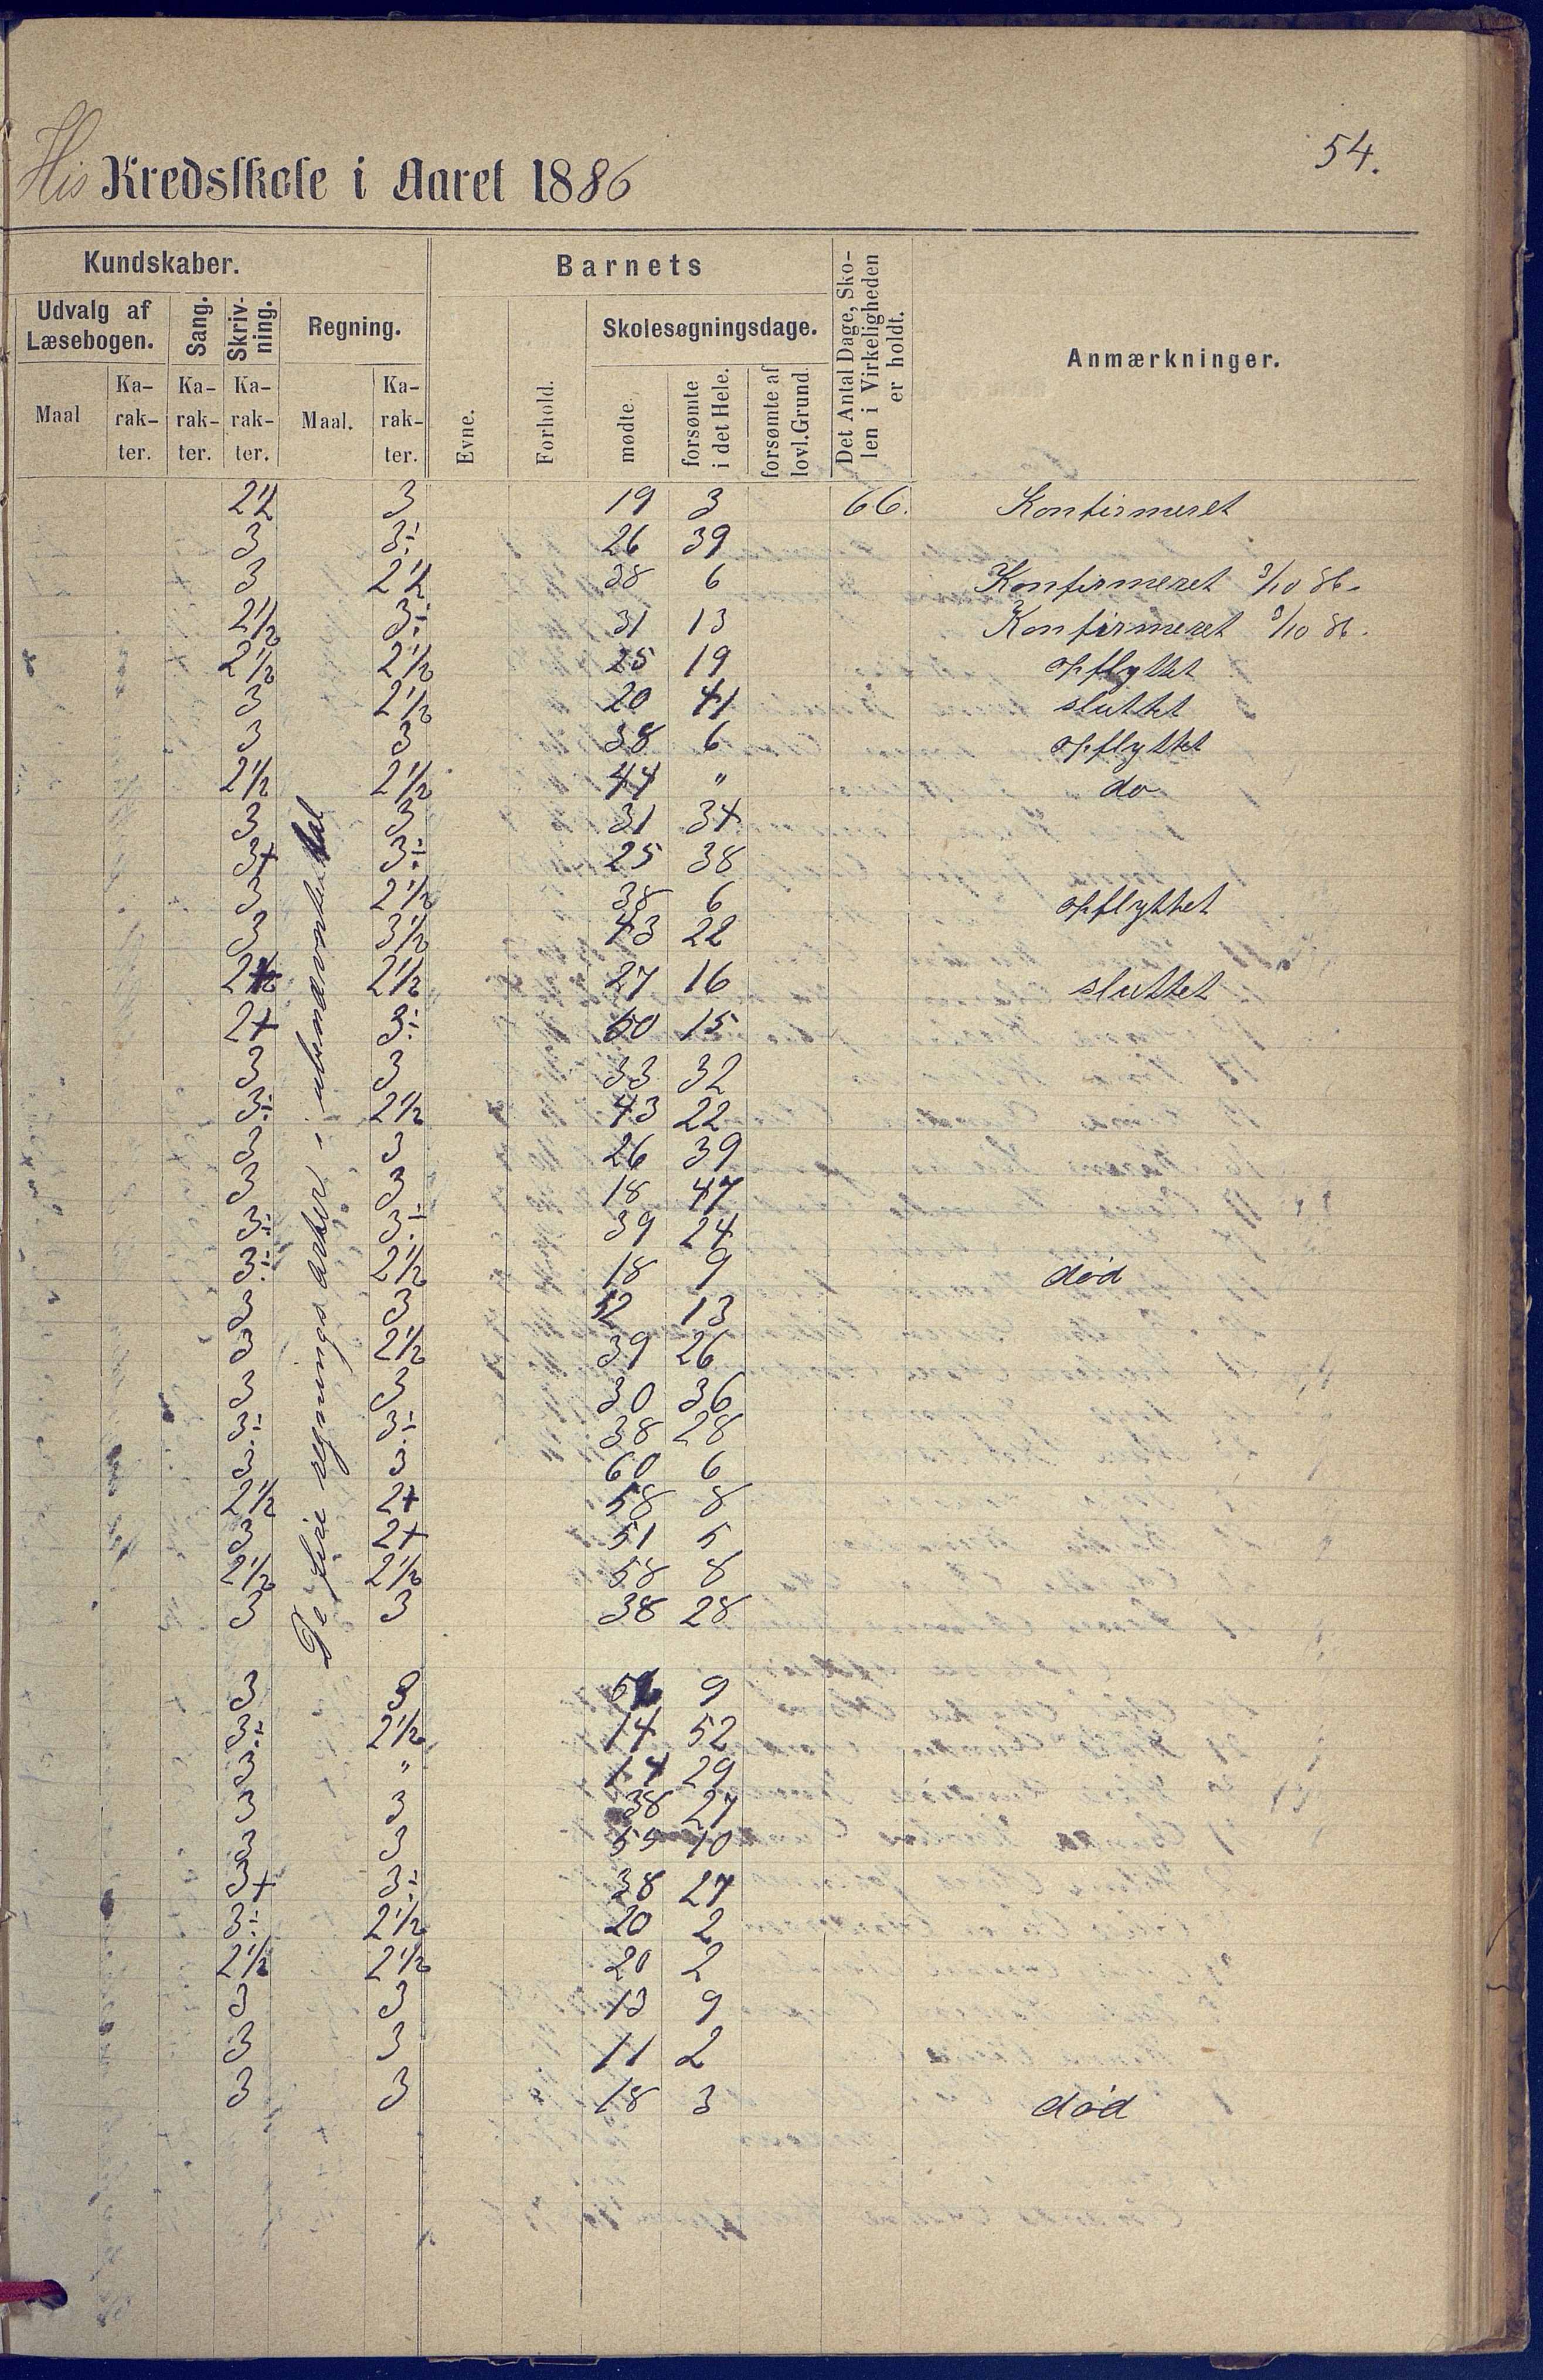 54.
His Kredsskole i Aaret 1886
Kundskaber.
Barnets
Det Antal Dage, Sko-
len i Virkeligheden
er holdt.
Anmærkninger.
Udvalg af
Læsebogen.
Sang.
Skriv-
ning.
Regning.
Evne.
Forhold.
Skolesøgningsdage.
Maal
Ka-
rak-
ter.
Ka-
rak-
ter.
Ka-
rak-
ter.
Maal.
Ka-
rak-
ter.
mødte
forsømte
i det Hele.
forsømte af
lovl.Grund.
De fire regningsarter i ubenævnte tal
2½ 3 19 3 66. Konfirmeret
3 3÷ 26 39
3 2½ 38 6 Konfirmeret 3/10 86.
2½ 3÷ 31 13 Konfirmeret 3/10 86.
2½ 2½ 25 19 opflyttet
3 2½ 20 41 sluttet
3 3 38 6 opflyttet
2½ 2½ 44 " do
3 3 31 34
3+ 3÷ 25 38
3 2½ 38 6 opflyttet
3 3½ 43 22
2½ 2½ 27 16 sluttet
2+ 3÷ 50 15
3 3 33 32
3÷ 2½ 43 22
3 3 26 39
3 3 18 47
3÷ 3÷ 39 24
3÷ 2½ 18 9 død
3 3 52 13
3 2½ 39 26
3 3 30 36
3÷ 3÷ 38 28
3 3 60 6
2½ 2+ 58 8
3 2+ 51 5
2½ 2½ 58 8
3 3 38 28
3 3 9
3÷ 2½ 14 52
3 " 14 29
3 3 38 27
3 3 55 10
3+ 3÷ 38 27
3÷ 2½ 20 2
2½ 2½ 20 2
3 3 13 9
3 3 11 2
3 3 18 3 død